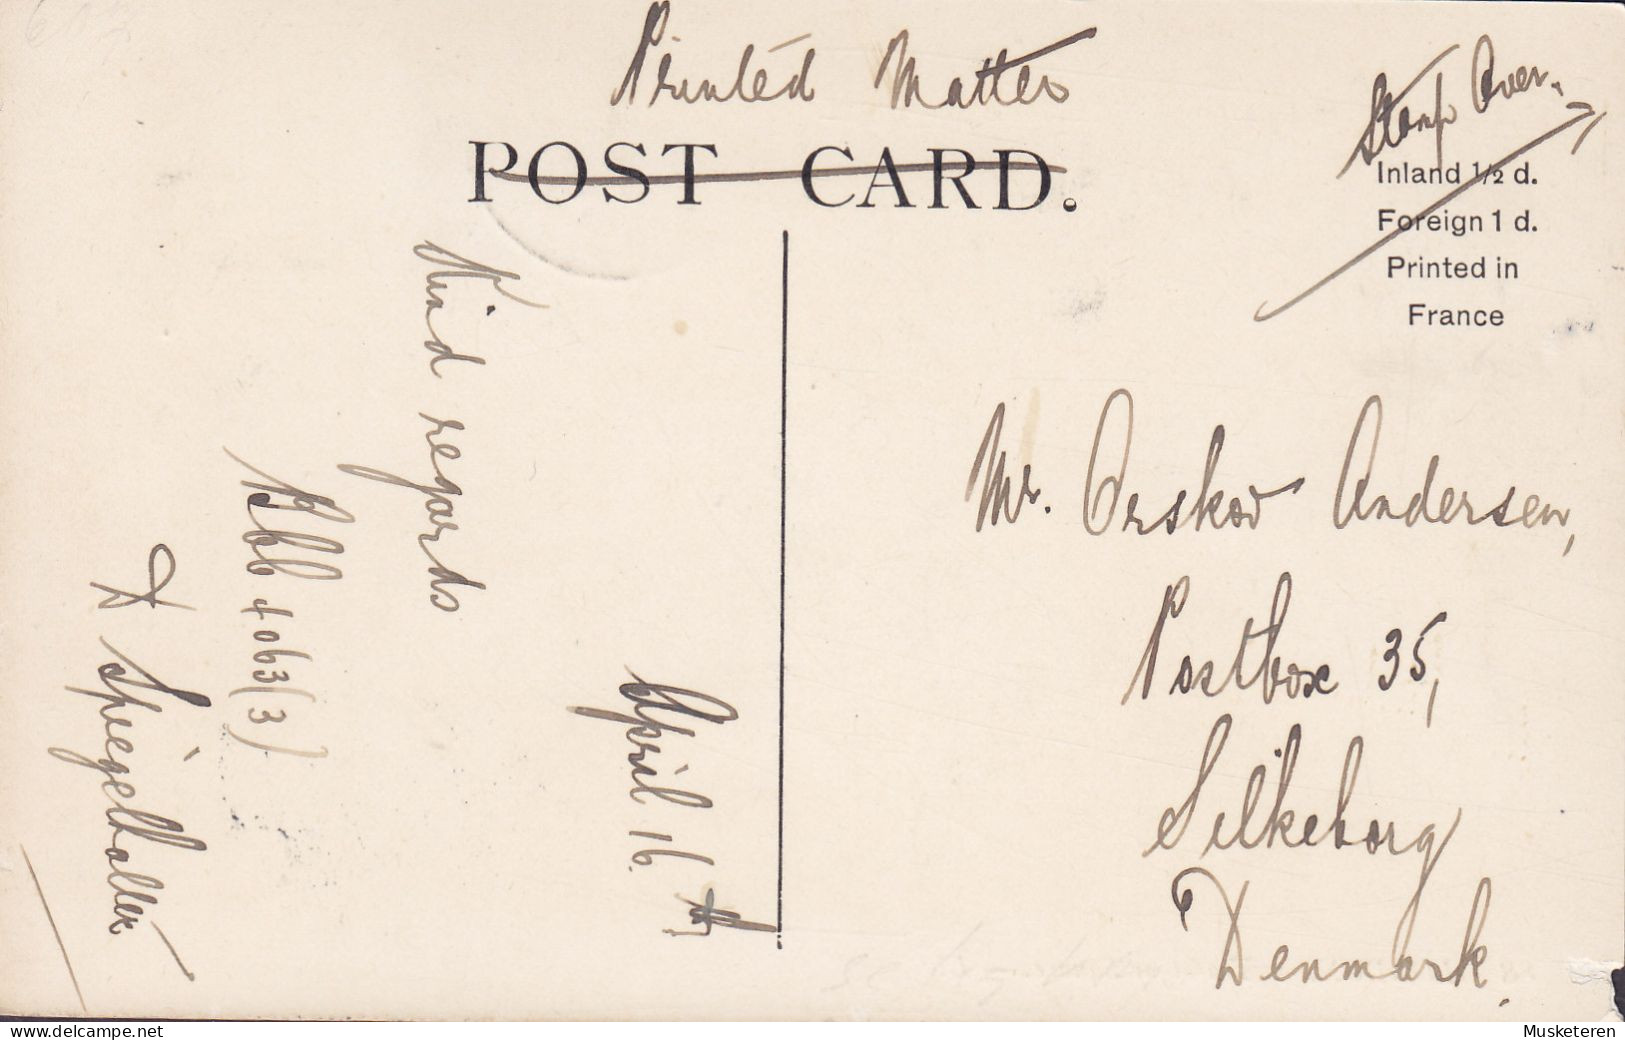 Printed Matter
POST CARD.
Stamp Over.
Inland 1/2 d.
Foreign 1 d.
Printed in
France
April 16th
Kind regards
4063(3)
D Spiegelhalter
Mr. Orskov Andersen,
Postbox 35,
Silkeborg
Denmark.
Musketeren